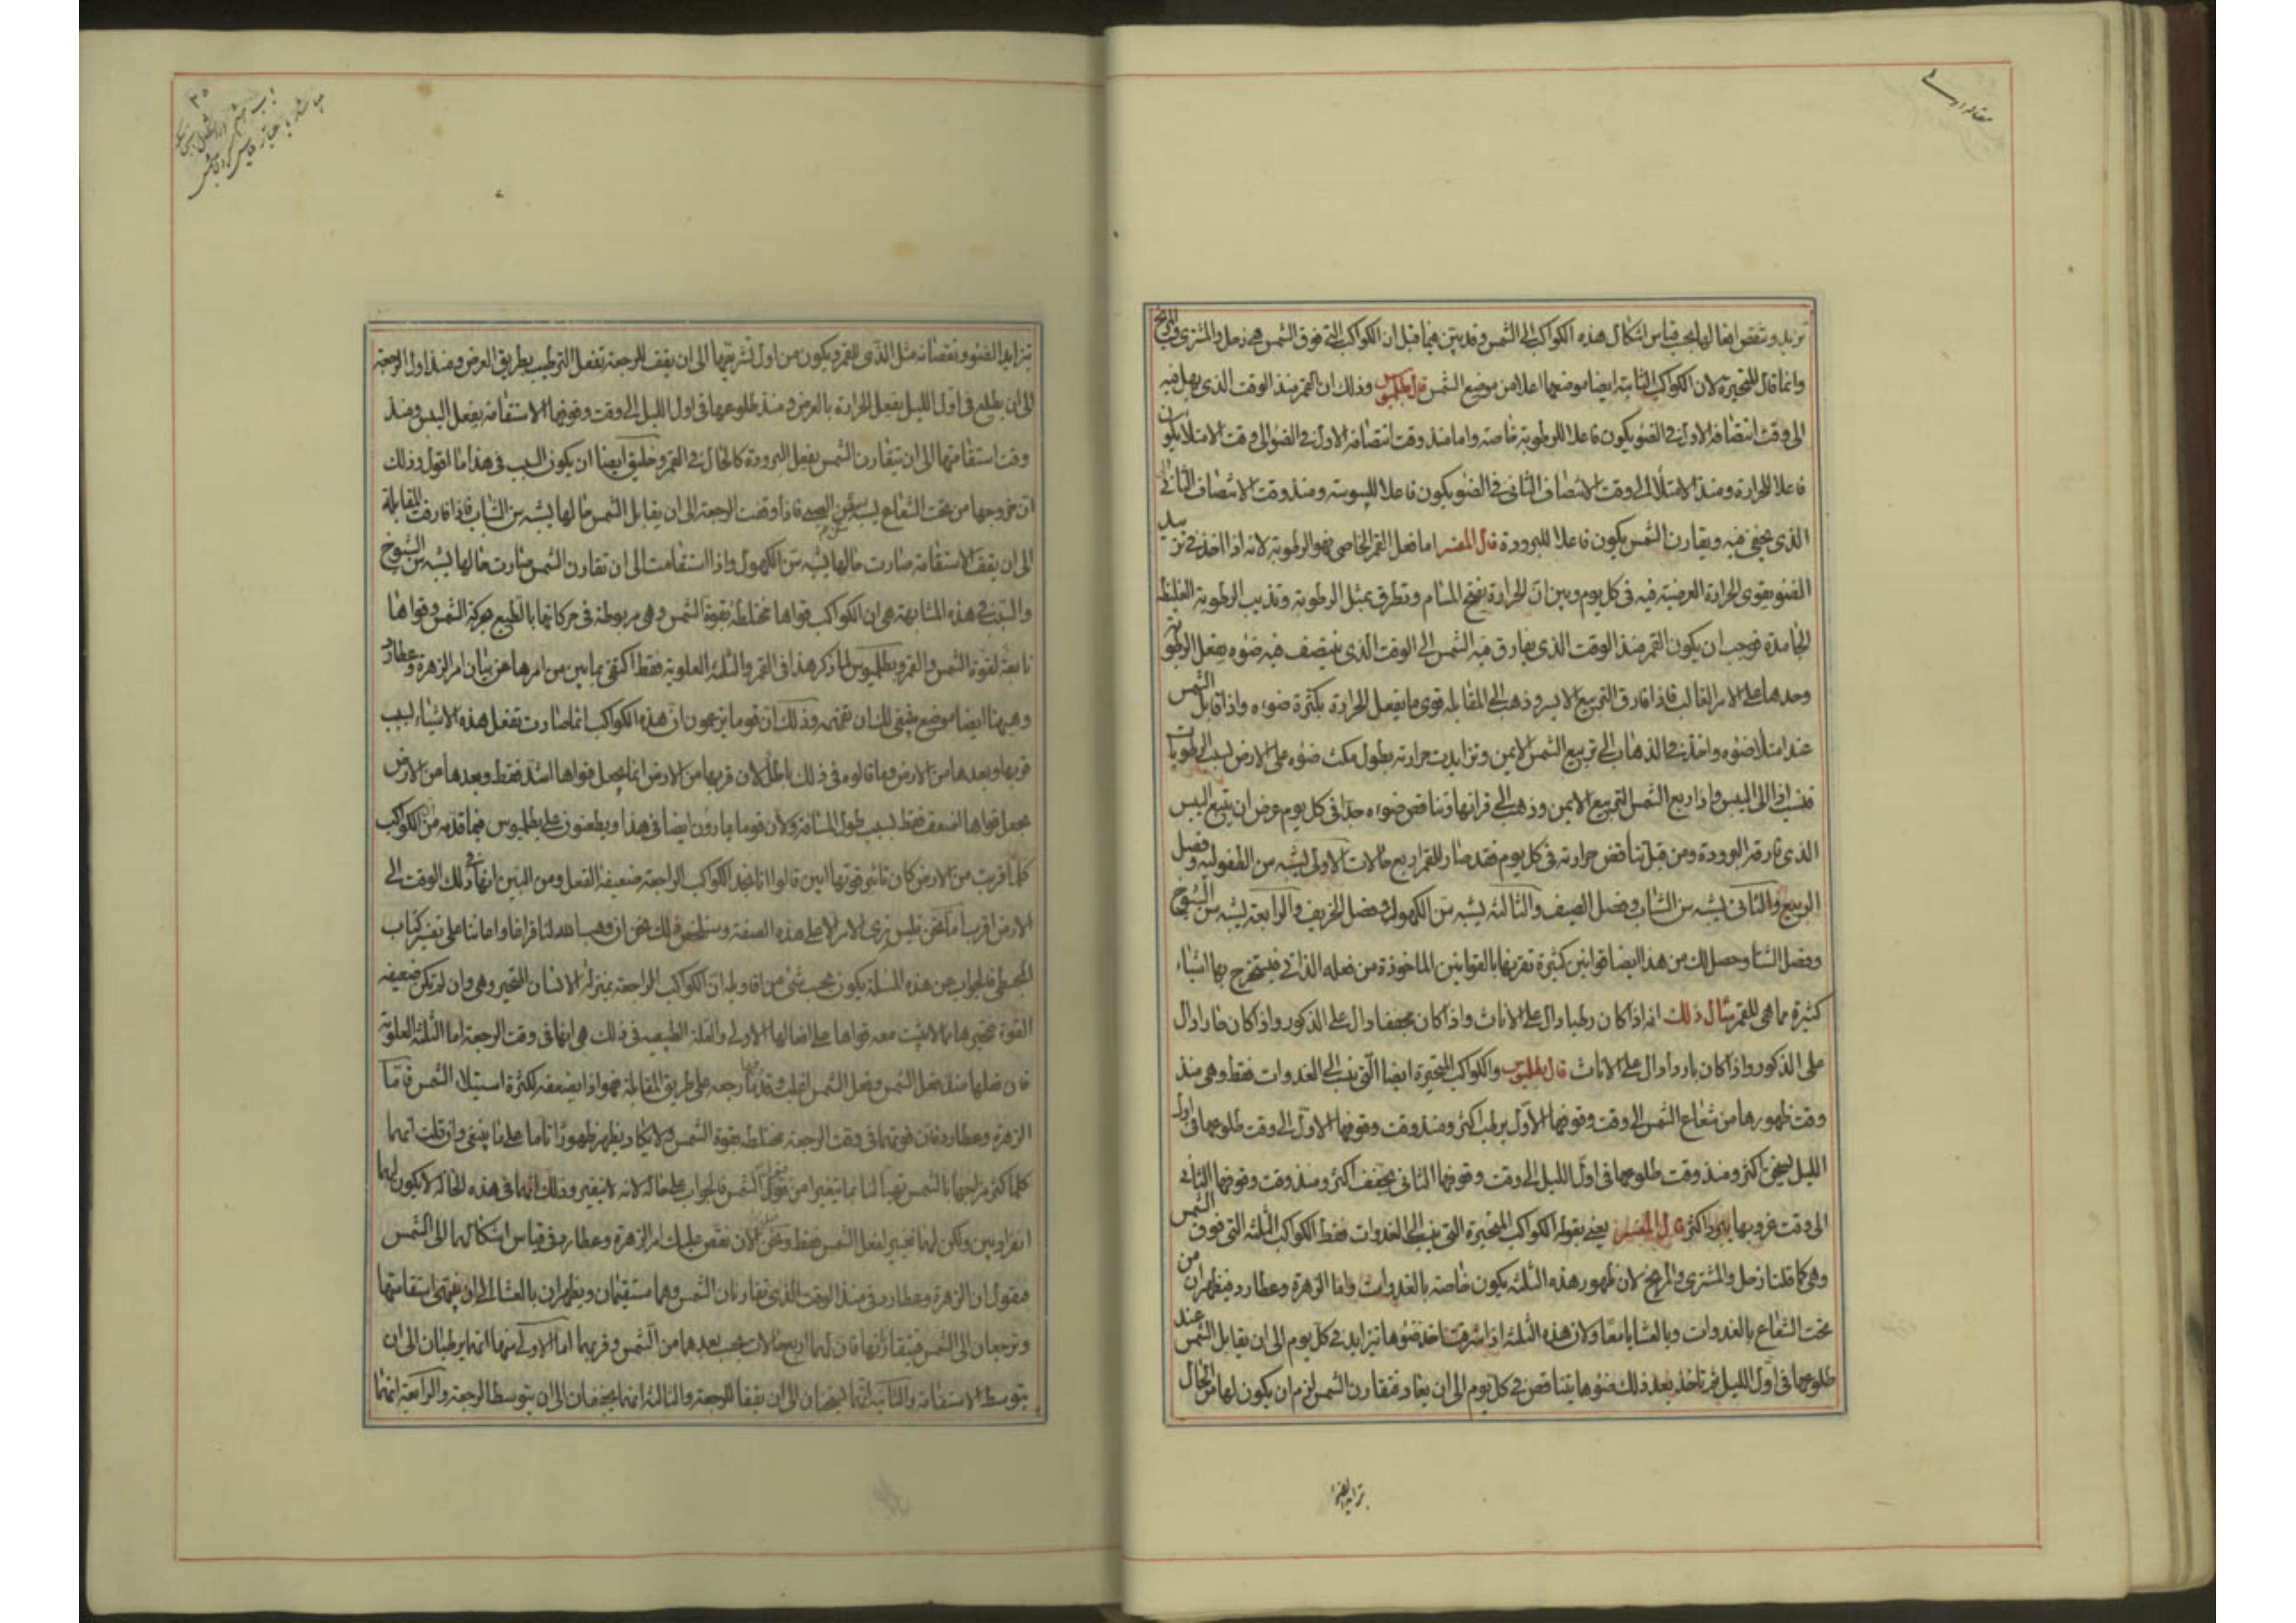 مقاله اولی
تزيد وتنقص افعالها بحسب قياس اشكال هذه الكواكب الى الشمس وقد يتبين فيما قبل ان الكواكب التي فوق الشمس هي زحل والمشتري والمريخ
وانما قال المتحيرة لان الكواكب الثابتة ايضا موضعها اعلا من موضع الشمس قال بطلميوس وذلك ان القمر منذ الوقت الذي يهل فيه
الى وقت انتصافه الاول في الضوء يكون فاعلا للرطوبة خاصة واما منذ وقت انتصافه الاول في الضوء الى وقت الامتلا يكون
فاعلا للحرارة ومنذ الامتلا الى وقت الانتصاف الثاني في الضوء يكون فاعلا لليبوسة ومنذ وقت الانتصاف الثاني الى
الذي يخفى فيه ويقارن الشمس يكون فاعلا للبرودة قال المفسر اما فعل القمر الخاصي فهو الرطوبة لانه اذا اخذ في تزيد
الضوء يقوى الحرارة العرضية فيه في كل يوم وبين ان الحرارة يفتح المسام وتطرق بمثل الرطوبة وتذيب الرطوبة الغليظة
الجامدة فوجب ان يكون القمر منذ الوقت الذي يفارق فيه الشمس الى الوقت الذي ينتصف فيه ضوه يفعل الرطوبة
وحدها على الامر الغالب فاذا فارق التربيع الايسر وذهب الى المقابلة قوى ما يفعل الحرارة بكثرة ضوءه واذا قابل الشمس
عند امتلا ضوه واخذ في الذهاب الى تربيع الشمس الايمن وتزايدت حرارته بطول مكث ضوه على الارض لسبب الرطوبات
فنسب اذا الى اليبس واذا ربع الشمس التربيع الايمن وذهب الى قرانها وتناقص ضوءه جدا في كل يوم عرض ان يتبع اليبس
الذي فارقه البرودة ومن قبل تناقص حرارته في كل يوم فقد صار للقمر اربع حالات الاولى يشبه سن الطفولية وفصل
الربيع والثاني يشبه سن الشباب وفصل الصيف والثالثه يشبه سن الكهول وفصل الخريف والرابعة يشبه سن الشيوخ
وفصل الشتا وحصل لك من هذا ايضا قوانين كثيرة تقرنها بالقوانين الماخوذة من فعله الذاتي فيستخرج بها اشياء
كثيرة مما هي للقمر مثال ذلك انه اذا كان رطبا دال على الاناث واذا كان مجففا دال على الذكور واذا كان حارا دال
على الذكور واذا كان باردا دال على الاناث قال بطلميوس والكواكب المتحيرة ايضا التي ينسب الى الغدوات فقط وهي منذ
وقت ظهورها من شعاع الشمس الى وقت وقوفها الاول يرطب اكثر ومنذ وقت وقوفها الاول الى وقت طلوعها في اول
الليل يسخن اكثر ومنذ وقت طلوعها في اول الليل الى وقت وقوفها الثاني يجفف اكثر ومنذ وقت وقوفها الثاني
الى وقت غروبها يبرد اكثر قال المفسر يعني بقوله الكواكب المتحيرة التي ينسب الى الغدوات فقط الكواكب الثلثة التي فوق الشمس
وهي كما قلنا زحل والمشتري والمريخ لان ظهور هذه الثلثة يكون خاصة بالغدوات واما الزهرة وعطارد فيظهران من
تحت الشعاع بالغدوات وبالعشايا معا ولان هذه الثلثة اذا شرقت اخذ ضوها تيزايد في كل يوم الى ان يقابل الشمس عند
طلوعها في اول الليل ثم تاخذ بعد ذلك ضوها يتناقص في كل يوم الى ان يعاد فتقارن الشمس لزم ان يكون لها من الحال
تزايد الضوء
٣٥
تتزايد الضوء ونقصانه مثل الذي للقمر ويكون من اول تشريقها الى ان يقف للرجعة تفعل الترطيب بطريق العرض ومنذ اول الرجعة
الى ان يطلع في اول الليل يفعل الحرارة بالعرض ومنذ طلوعها في اول الليل الى وقت وقوفها للاستقامة يفعل اليبس ومنذ
وقت استقامتها الى ان تيقارن الشمس يفعل البرودة كالحال في القمر وخليق ايضا ان يكون السبب في هذا ما اقول وذلك
ان خروجها من تحت الشعاع يشبه سن الصبى فاذا وقفت الرجعة الى ان يقابل الشمس حالها يشبه سن الشباب فاذا فارقت المقابلة
الى ان يقف للاستقامة صارت حالها يشبه سن الكهول واذا استقامت الى ان تقارن الشمس صارت حالها يشبه سن الشيوخ
والسبب في هذه المشابهة هي ان الكواكب قواها مختلطة بقوة الشمس وهي مربوطة في حركاتها بالطبع بحركة الشمس وقواها
تابعة لقوة الشمس والقمر وبطلميوس لما ذكر هذا في القمر والثلثة العلوية فقط اكتفى بما بين من امرها عن بيان امر الزهرة وعطارد
وههنا ايضا موضع ينبغي لك ان تفهمه وذلك ان قوما يزعمون ان هذه الكواكب انما صارت تفعل هذه الاشياء لسبب
قربها وبعدها من الارض وما قالوه في ذلك باطل لان قربها من الارض انما يجعل قواها اشد فقط وبعدها من الارض
يجعل قواها اضعف فقط لسبب طول المسافة ولان قوما يمارون ايضا في هذا ويطعنون على بطلميوس فيما قدمه من ان الكواكب
كلما قربت من الارض كان تاثير قوتها ابين قالوا انا نجد الكواكب الراجعة ضعيفة الفعل ومن البين انها في ذلك الوقت الى
الارض اقرب اما نحن فليس نرى الامر الا على هذه الصفة وسنلخص ذلك نحن ان وهب الله لنا فراغا واعاننا على تفسير كتاب
المجسطي فالجواب عن هذه المسلة يكون بحسب شي من اقاويله ان الكواكب الراجعة بمنزلة الانسان المتحير وهي وان لم تكن ضعيفه
القوة تحيرها مما لا يثبت معه قواها على افعالها الاولى والعلة الطبيعيه في ذلك هي انها في وقت الرجعة اما الثلثة العلوية
فان فعلها ضد فعل الشمس وفعل الشمس اغلب وقد رجعه على طريق المقابلة فهو اذا يضعفه لكثرة استيلا الشمس فاما
الزهرة وعطارد فان قوتهما في وقت الرجعة مختلطه بقوة الشمس ولا يكاد يظهر ظهورا تاما على ما ينبغي وان قلت انهما
كلما كثر مزاجهما بالشمس فالجواب على حاله لانه لا يتغير وذلك انهما في هذه الحالة لا يكون لهما
انفراد بين ولكن لهما تغيير لفعل الشمس فقط ونحن الان نقص عليك امر الزهرة وعطارد في قياس اشكالهما الى الشمس
فنقول ان الزهرة وعطارد في منذ الوقت الذي تقارنان الشمس وهما مستقيمان ويظهران بالعشا الى ان ينتهى استقامتها
وترجعان الى الشمس فيتقارنها فان لهما اربع حالات بحسب بعدهما من الشمس وقربهما اما الاولى منهما انهما يرطبان الى ان
يتوسط الاستقامة والثانية انهما يسخنان الى ان يقفا للرجعة والثالثة انهما يجففان الى ان يتوسط الرجعة والرابعة انهما